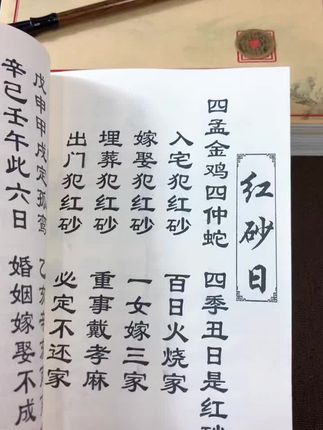 红砂日
四孟金鸡四仲蛇 四季丑日是红砂
入宅犯红砂 百日火烧家
嫁娶犯红砂 一女嫁三家
埋葬犯红砂 重事戴孝麻
出门犯红砂 必定不还家
戊申甲戌定孤鸾
辛巳壬午此六日 婚姻嫁娶不成